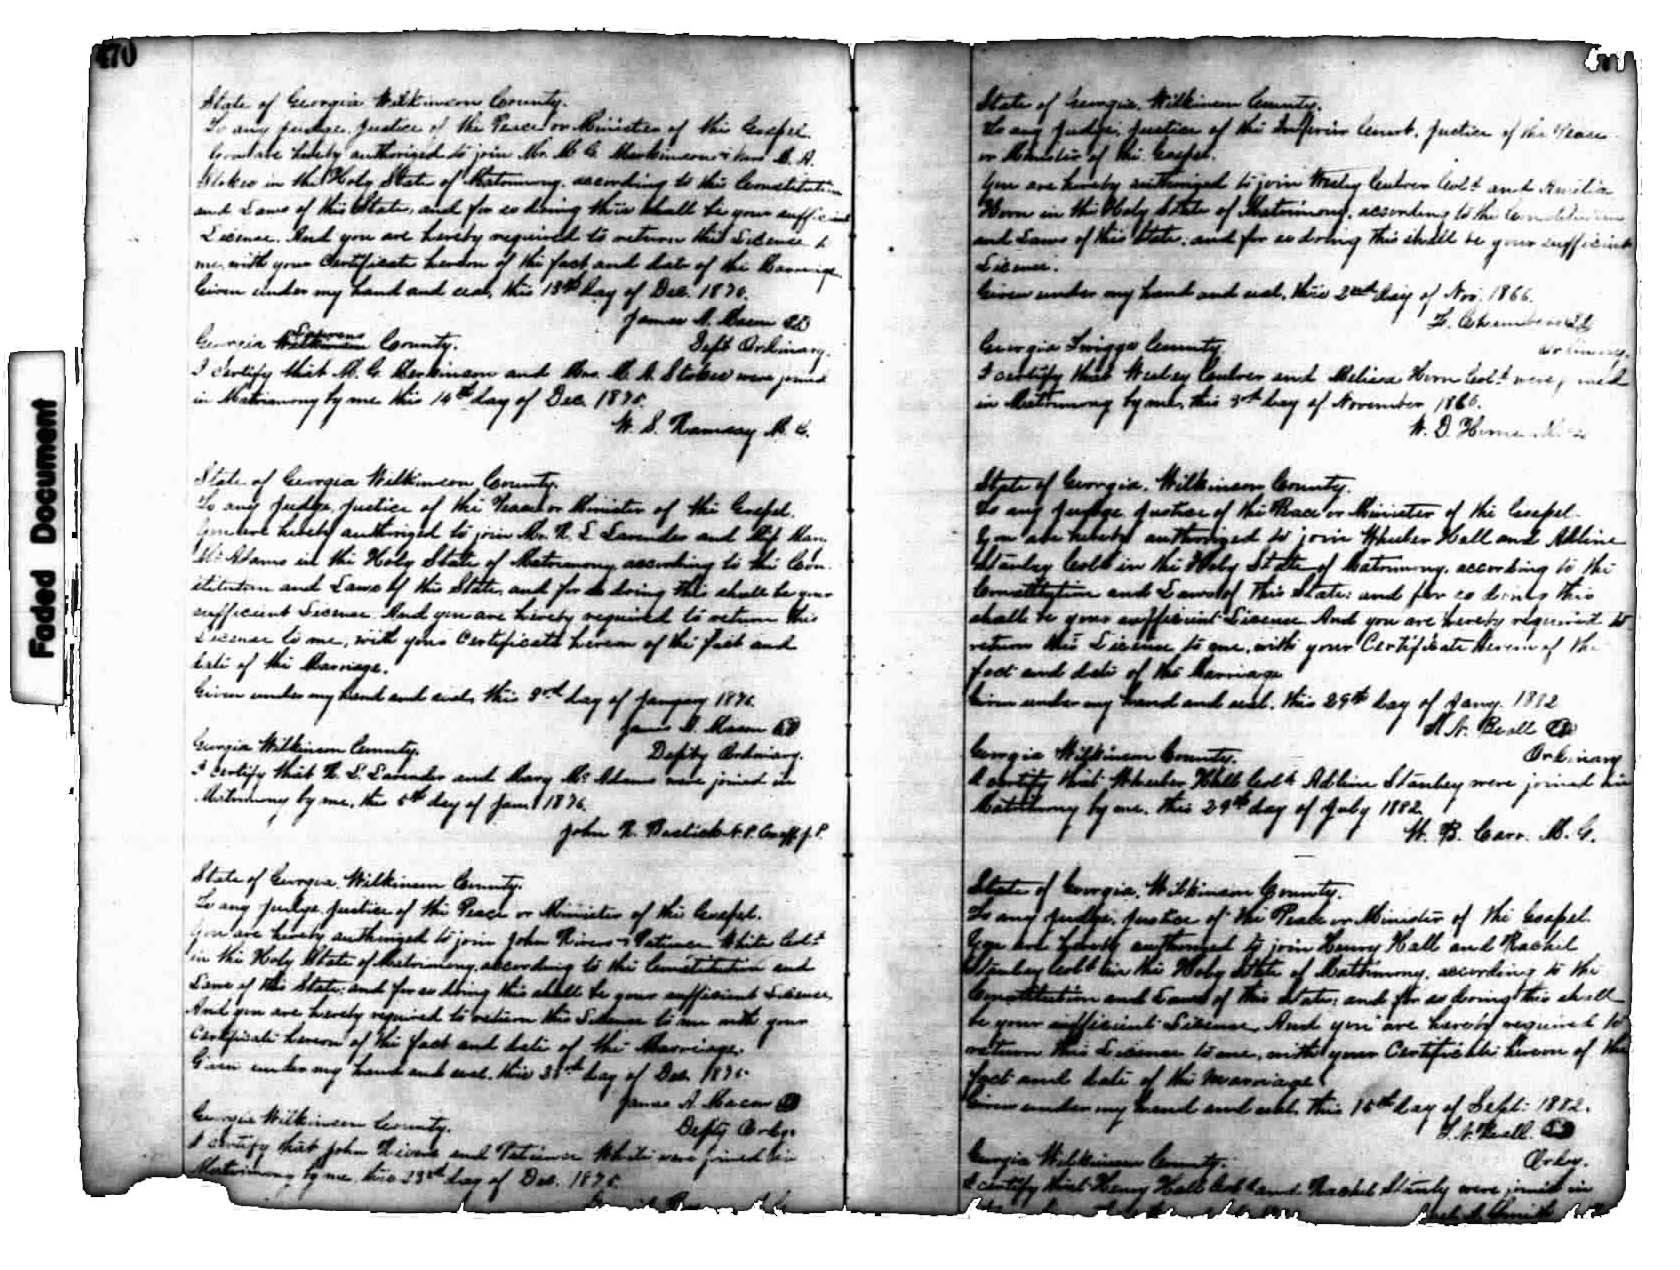 470
Faded Document
State of Georgia Wilkinson County.
To any Judge, Justice of the Peace or Minister of the Gospel.
You are hereby authorized to join Mr. M. G. & Mrs. M. A.
Stokes in the Holy State of Matrimony, according to the Constitution
and Laws of this State, and for so doing this shall be your sufficient
License. And you are hereby required to return this License to
me, with your Certificate hereon of the fact and date of the Marriage.
Given under my hand and seal, this 13th day of Dec. 187
James A. Mason
Dept Ordinary.
Georgia Laurens Wilkinson County.
I certify that M. G. and Mrs. M. A. Stokes were joined
in Matrimony by me this 14th day of Dec. 187
W. S. Ramsay M. G.
State of Georgia Wilkinson County.
To any Judge, Justice of the Peace or Minister of the Gospel.
You are hereby authorized to join Mr. N. L. Lavender and
McAdams in the Holy State of Matrimony according to the Con-
stitution and Laws of this State, and for so doing this shall be your
sufficient License. And you are hereby required to return this
License to me, with your Certificate hereon of the fact and
date of the Marriage.
Given under my hand and seal, this 3rd day of January 1876.
James A. Mason
Deputy Ordinary.
Georgia Wilkinson County.
I certify that N. L. Lavender and Mary McAdams were joined in
Matrimony by me, this 5th day of Jan. 1876.
John R. N.P. Exoff J.P.
State of Georgia Wilkinson County.
To any Judge, Justice of the Peace or Minister of the Gospel.
You are hereby authorized to join John Rivers & Patience White Cold
in the Holy State of Matrimony, according to the Constitution and
Laws of this State; and for so doing this shall be your sufficient License.
And you are hereby required to return this License to me with your
Certificate hereon of the fact and date of the Marriage.
Given under my hand and seal, this day of Dec. 187
James A. Mason
Depty Ordy.
Georgia Wilkinson County.
I certify that John Rivers and Patience White were joined in
Matrimony by me, this 23rd day of Dec. 187
State of Georgia, Wilkinson County.
To any Judge, Justice of the Inferior Court, Justice of the Peace
or Minister of the Gospel.
You are hereby authorized to join Wesley Culver Cold and Amelia
Horn in the Holy State of Matrimony, according to the Constitution
and Laws of this State; and for so doing this shall be your sufficient
License.
Given under my hand and seal, this 2nd day of Nov. 1866.
Chambers
Ordinary.
Georgia Twiggs County.
I certify that Wesley Culver and Melissa Horn Cold were joined
in Matrimony by me, this 3rd day of November 1866.
W. D. Horne
State of Georgia, Wilkinson County.
To any Judge, Justice of the Peace or Minister of the Gospel.
You are hereby authorized to join Wheeler Hall and Adline
Stanley Cold in the Holy State of Matrimony, according to the
Constitution and Laws of this State; and for so doing this
shall be your sufficient License. And you are hereby required to
return this License to me, with your Certificate hereon of the
fact and date of the Marriage
Given under my hand and seal, this 29th day of 1882
Beall
Ordinary
Georgia Wilkinson County.
I certify that Wheeler Hall Cold & Adline Stanley were joined in
Matrimony by me, this 29th day of July 1882.
W. B. Carr. M. G.
State of Georgia, Wilkinson County.
To any Judge, Justice of the Peace or Minister of the Gospel.
You are hereby authorized to join Henry Hall and Rachel
Stanley Cold in the Holy State of Matrimony, according to the
Constitution and Laws of this State; and for so doing this shall
be your sufficient License. And you are hereby required to
return this License to me, with your Certificate hereon of the
fact and date of the marriage.
Given under my hand and seal, this 15th day of Sept. 1882.
Beall
Ordy.
Georgia Wilkinson County.
I certify that Henry Hall Cold and Rachel Stanley were joined in
Smith